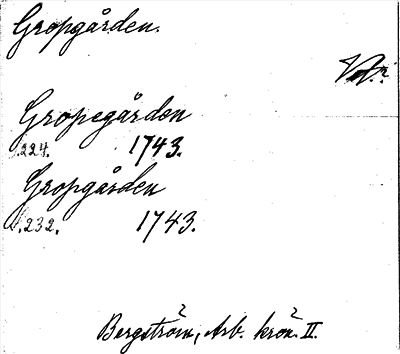 Gropgården.
Gropegården
s.224. 1743.
Gropgården
s.232. 1743.
Bergström, Arb. krön. II.